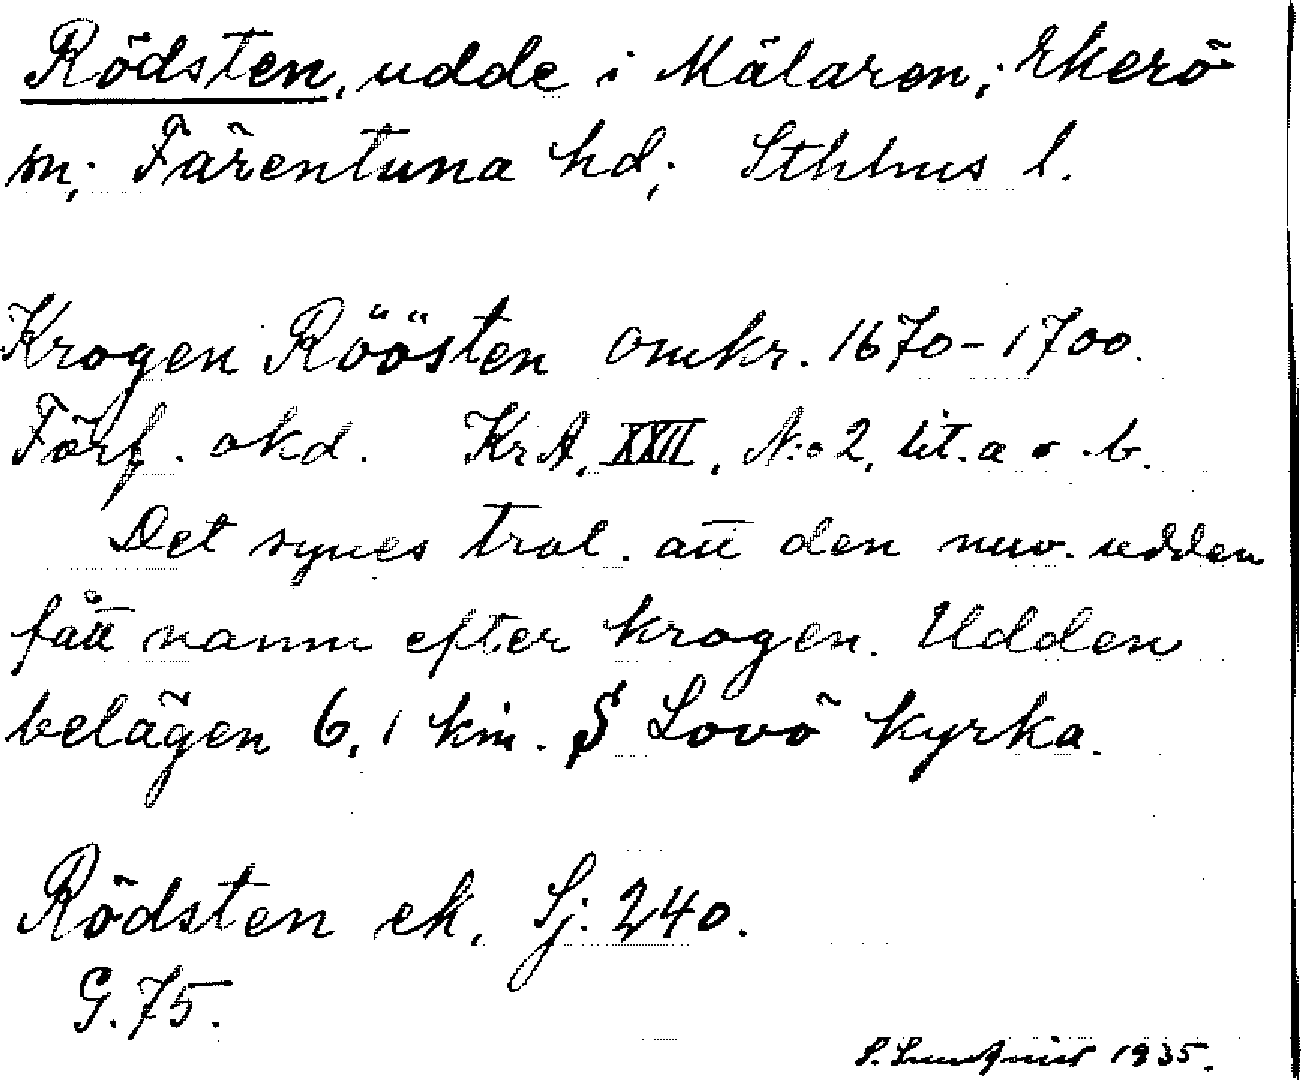 Rödsten, udde i Mälaren; Ekerö
sn; Färentuna hd; Sthlms l.
Krogen Röösten omkr. 1670-1700.
Förf. okd. KrA, XXII, N:o 2, lit. a o. b.
Det synes trol. att den nuv. udden
fått namn efter krogen. Udden
belägen 6,1 km. S Lovö kyrka.
Rödsten ek. Sj. 240.
G. 75.
S. Lundqvist 1935.